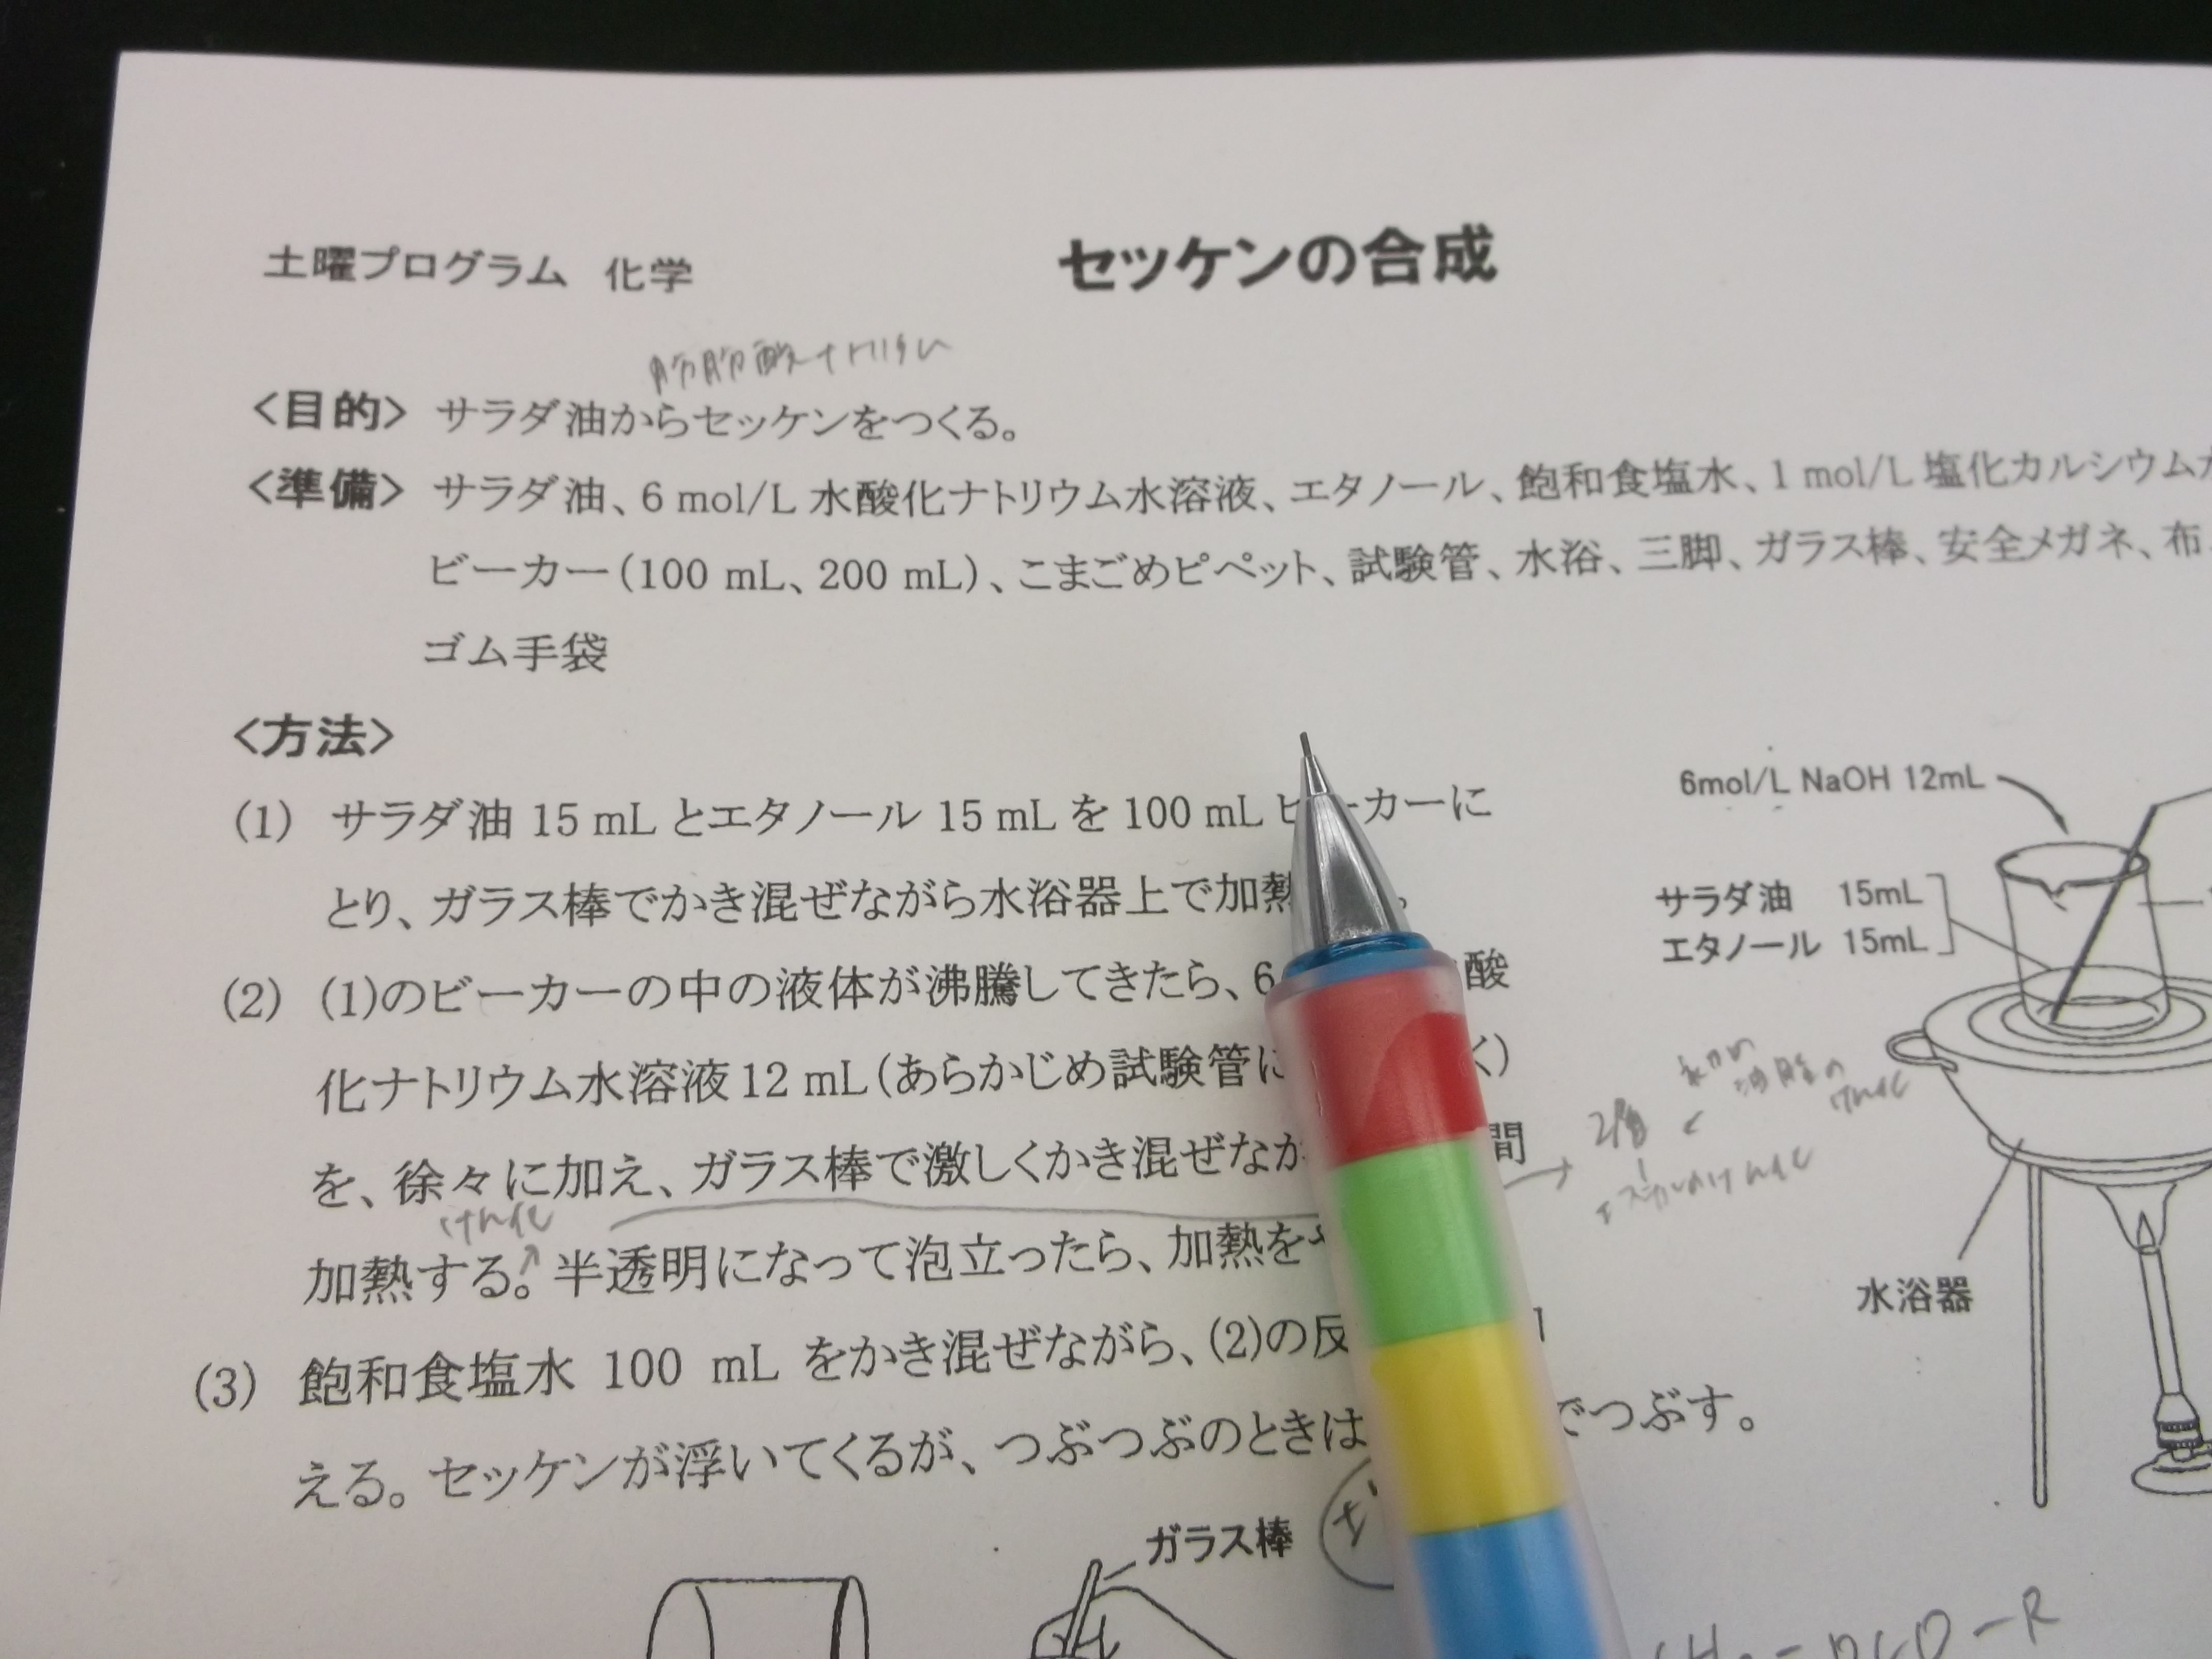 土曜プログラム 化学
セッケンの合成
脂肪酸ナトリウム
<目的> サラダ油からセッケンをつくる。
<準備> サラダ油、6 mol/L 水酸化ナトリウム水溶液、エタノール、飽和食塩水、1 mol/L 塩化カルシウム
ビーカー(100 mL、200 mL)、こまごめピペット、試験管、水浴、三脚、ガラス棒、安全メガネ、布
ゴム手袋
<方法>
(1) サラダ油 15 mL とエタノール 15 mL を 100 mL ビーカーに
とり、ガラス棒でかき混ぜながら水浴器上で加熱
(2) (1)のビーカーの中の液体が沸騰してきたら、6 酸
化ナトリウム水溶液 12 mL(あらかじめ試験管に く)
を、徐々に加え、ガラス棒で激しくかき混ぜなが 間
けん化
加熱する。半透明になって泡立ったら、加熱を
(3) 飽和食塩水 100 mL をかき混ぜながら、(2)の反
える。セッケンが浮いてくるが、つぶつぶのときは でつぶす。
6mol/L NaOH 12mL
サラダ油 15mL
エタノール 15mL
油脂の
けん化
水浴器
ガラス棒